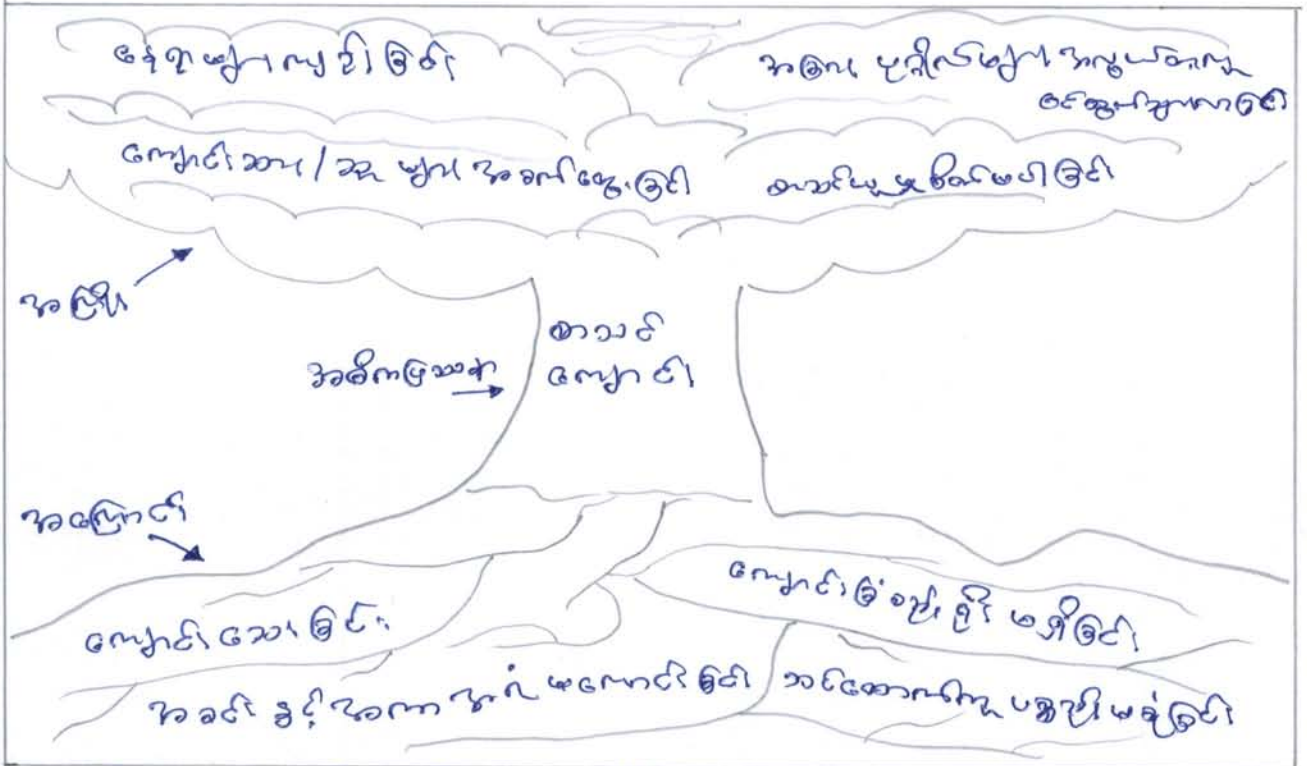 နေရာများကျဉ်းခြင်း
အခြားပုဂ္ဂိုလ်များအလွယ်တကူ
ဝင်ထွက်သွားလာခြင်း
ကျောင်းသား/သူများအခက်တွေ့ခြင်း
စာသင်ယူမှုစိတ်မပါခြင်း
အကျိုး
စာသင်
ကျောင်း
အဓိကပြဿနာ
အကြောင်း
ကျောင်းသေးခြင်း
ကျောင်းခြံစည်းရိုးမရှိခြင်း
အခင်းနှင့်အကာအရံမကောင်းခြင်း
သင်ထောက်ကူပစ္စည်းမစုံခြင်း